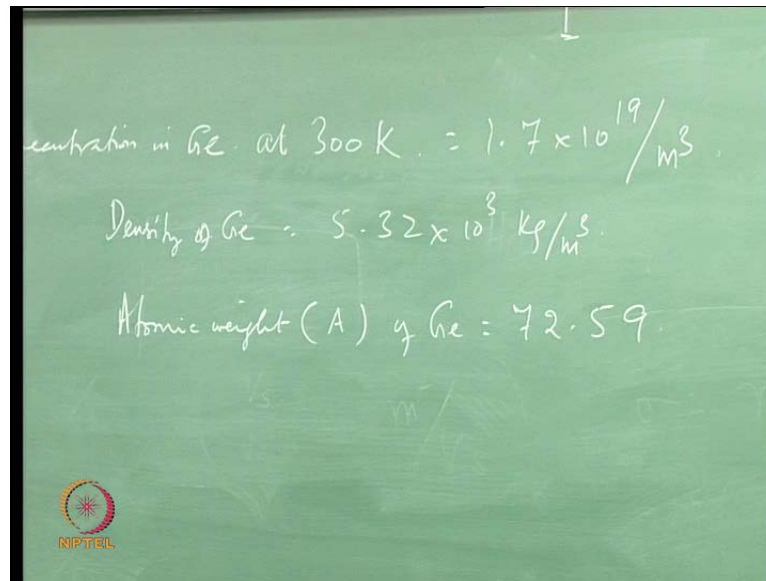 centration in Ge. at 300 K. = 1.7 × 10¹⁹/m³.
Density of Ge = 5.32 × 10³ kg/m³.
Atomic weight (A) of Ge = 72.59.
NPTEL